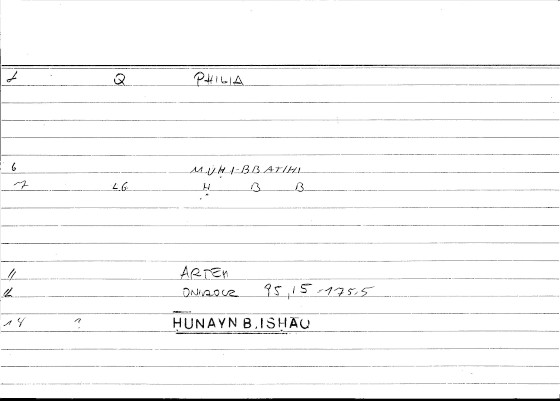 1 Q PHILIA
6 MUḤI-BBATIHI
7 LG Ḥ B B
11 ARTEM
12 ONIROCR 95,15-175.5
14 ? HUNAYN B.ISHAQ